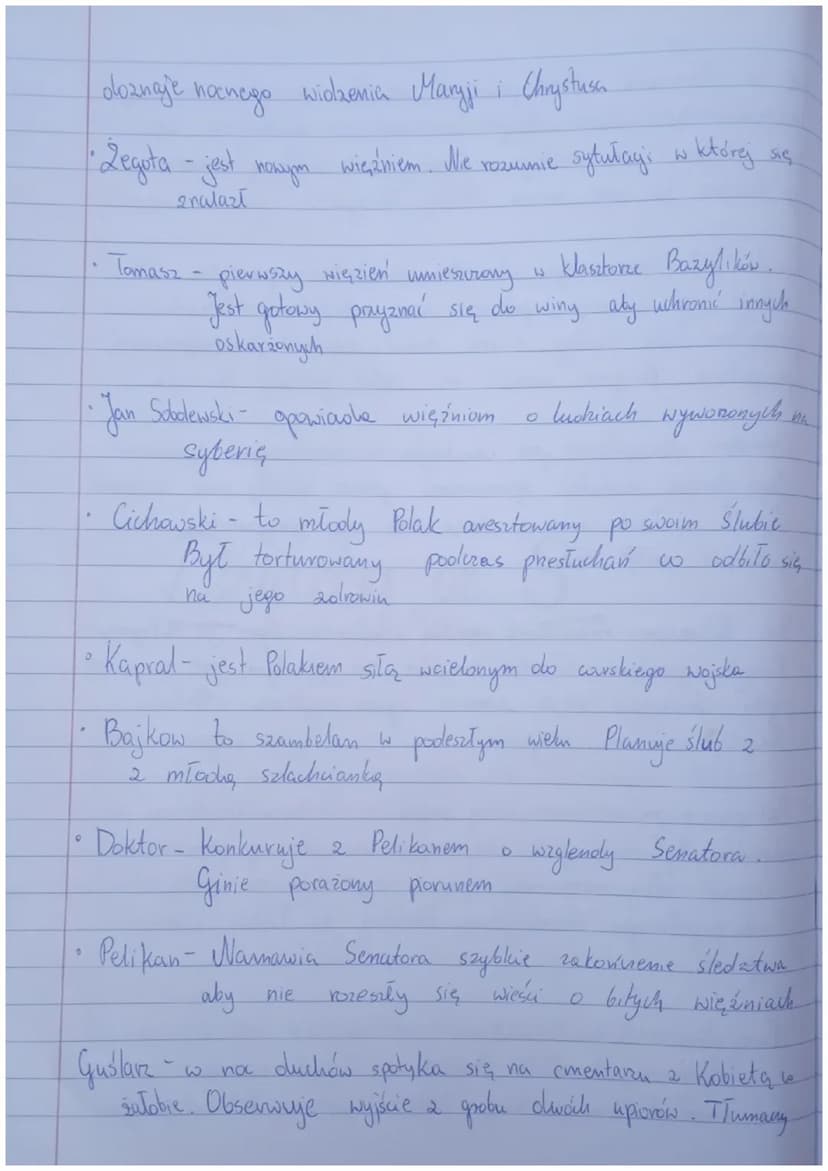 doznaje nocnego widzenia Maryji i Chrystusa
· Żegota - jest nowym więźniem. Nie rozumie sytułacji w której się
znalazł
· Tomasz - pierwszy więzień umieszczony w klasztorze Bazylików.
Jest gotowy przyznać się do winy aby uchronić innych
oskarżonych
· Jan Sobolewski - opowiada więźniom o ludziach wywożonych na
syberię
· Cichowski - to młody Polak aresztowany po swoim ślubie
Był torturowany podczas przesłuchań co odbiło się
na jego zdrowiu
· Kapral - jest Polakiem siłą wcielonym do carskiego wojska
· Bajkow to szambelan w podeszłym wieku Planuje ślub z
z młodą szlachcianką
· Doktor - Konkuruje z Pelikanem o wzglendy Senatora.
Ginie porażony piorunem
· Pelikan - Namawia Senatora szybkie zakończenie śledztwa
aby nie rozeszły się wieści o bitych więźniach
Guślarz - w noc duchów spotyka się na cmentarzu z Kobietą w
żałobie. Obserwuje wyjście z grobu dwóch upiorów. Tłumaczy